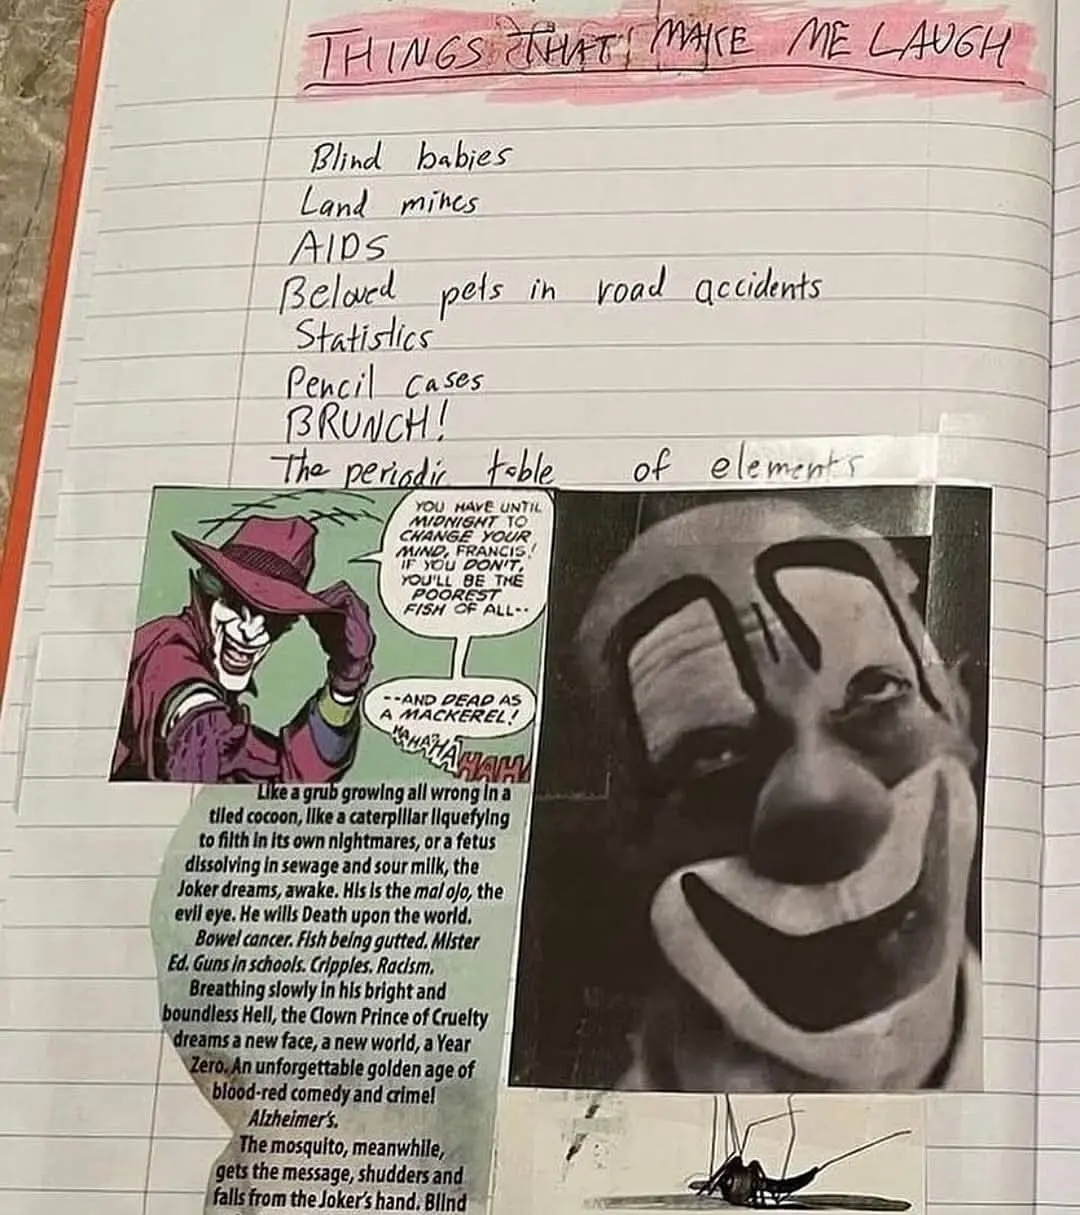 THINGS THAT MAKE ME LAUGH
Blind babies
Land mines
AIDS
Beloved pets in road accidents
Statistics
Pencil cases
BRUNCH!
The periodic table of elements
YOU HAVE UNTIL
MIDNIGHT TO
CHANGE YOUR
MIND, FRANCIS!
IF YOU DON'T,
YOU'LL BE THE
POOREST
FISH OF ALL--
--AND DEAD AS
A MACKEREL!
HAHAHAHAHA
Like a grub growing all wrong in a
tiled cocoon, like a caterpillar liquefying
to filth in its own nightmares, or a fetus
dissolving in sewage and sour milk, the
Joker dreams, awake. His is the mal ojo, the
evil eye. He wills Death upon the world.
Bowel cancer. Fish being gutted. Mister
Ed. Guns in schools. Cripples. Racism.
Breathing slowly in his bright and
boundless Hell, the Clown Prince of Cruelty
dreams a new face, a new world, a Year
Zero. An unforgettable golden age of
blood-red comedy and crime!
Alzheimer's.
The mosquito, meanwhile,
gets the message, shudders and
falls from the Joker's hand. Blind